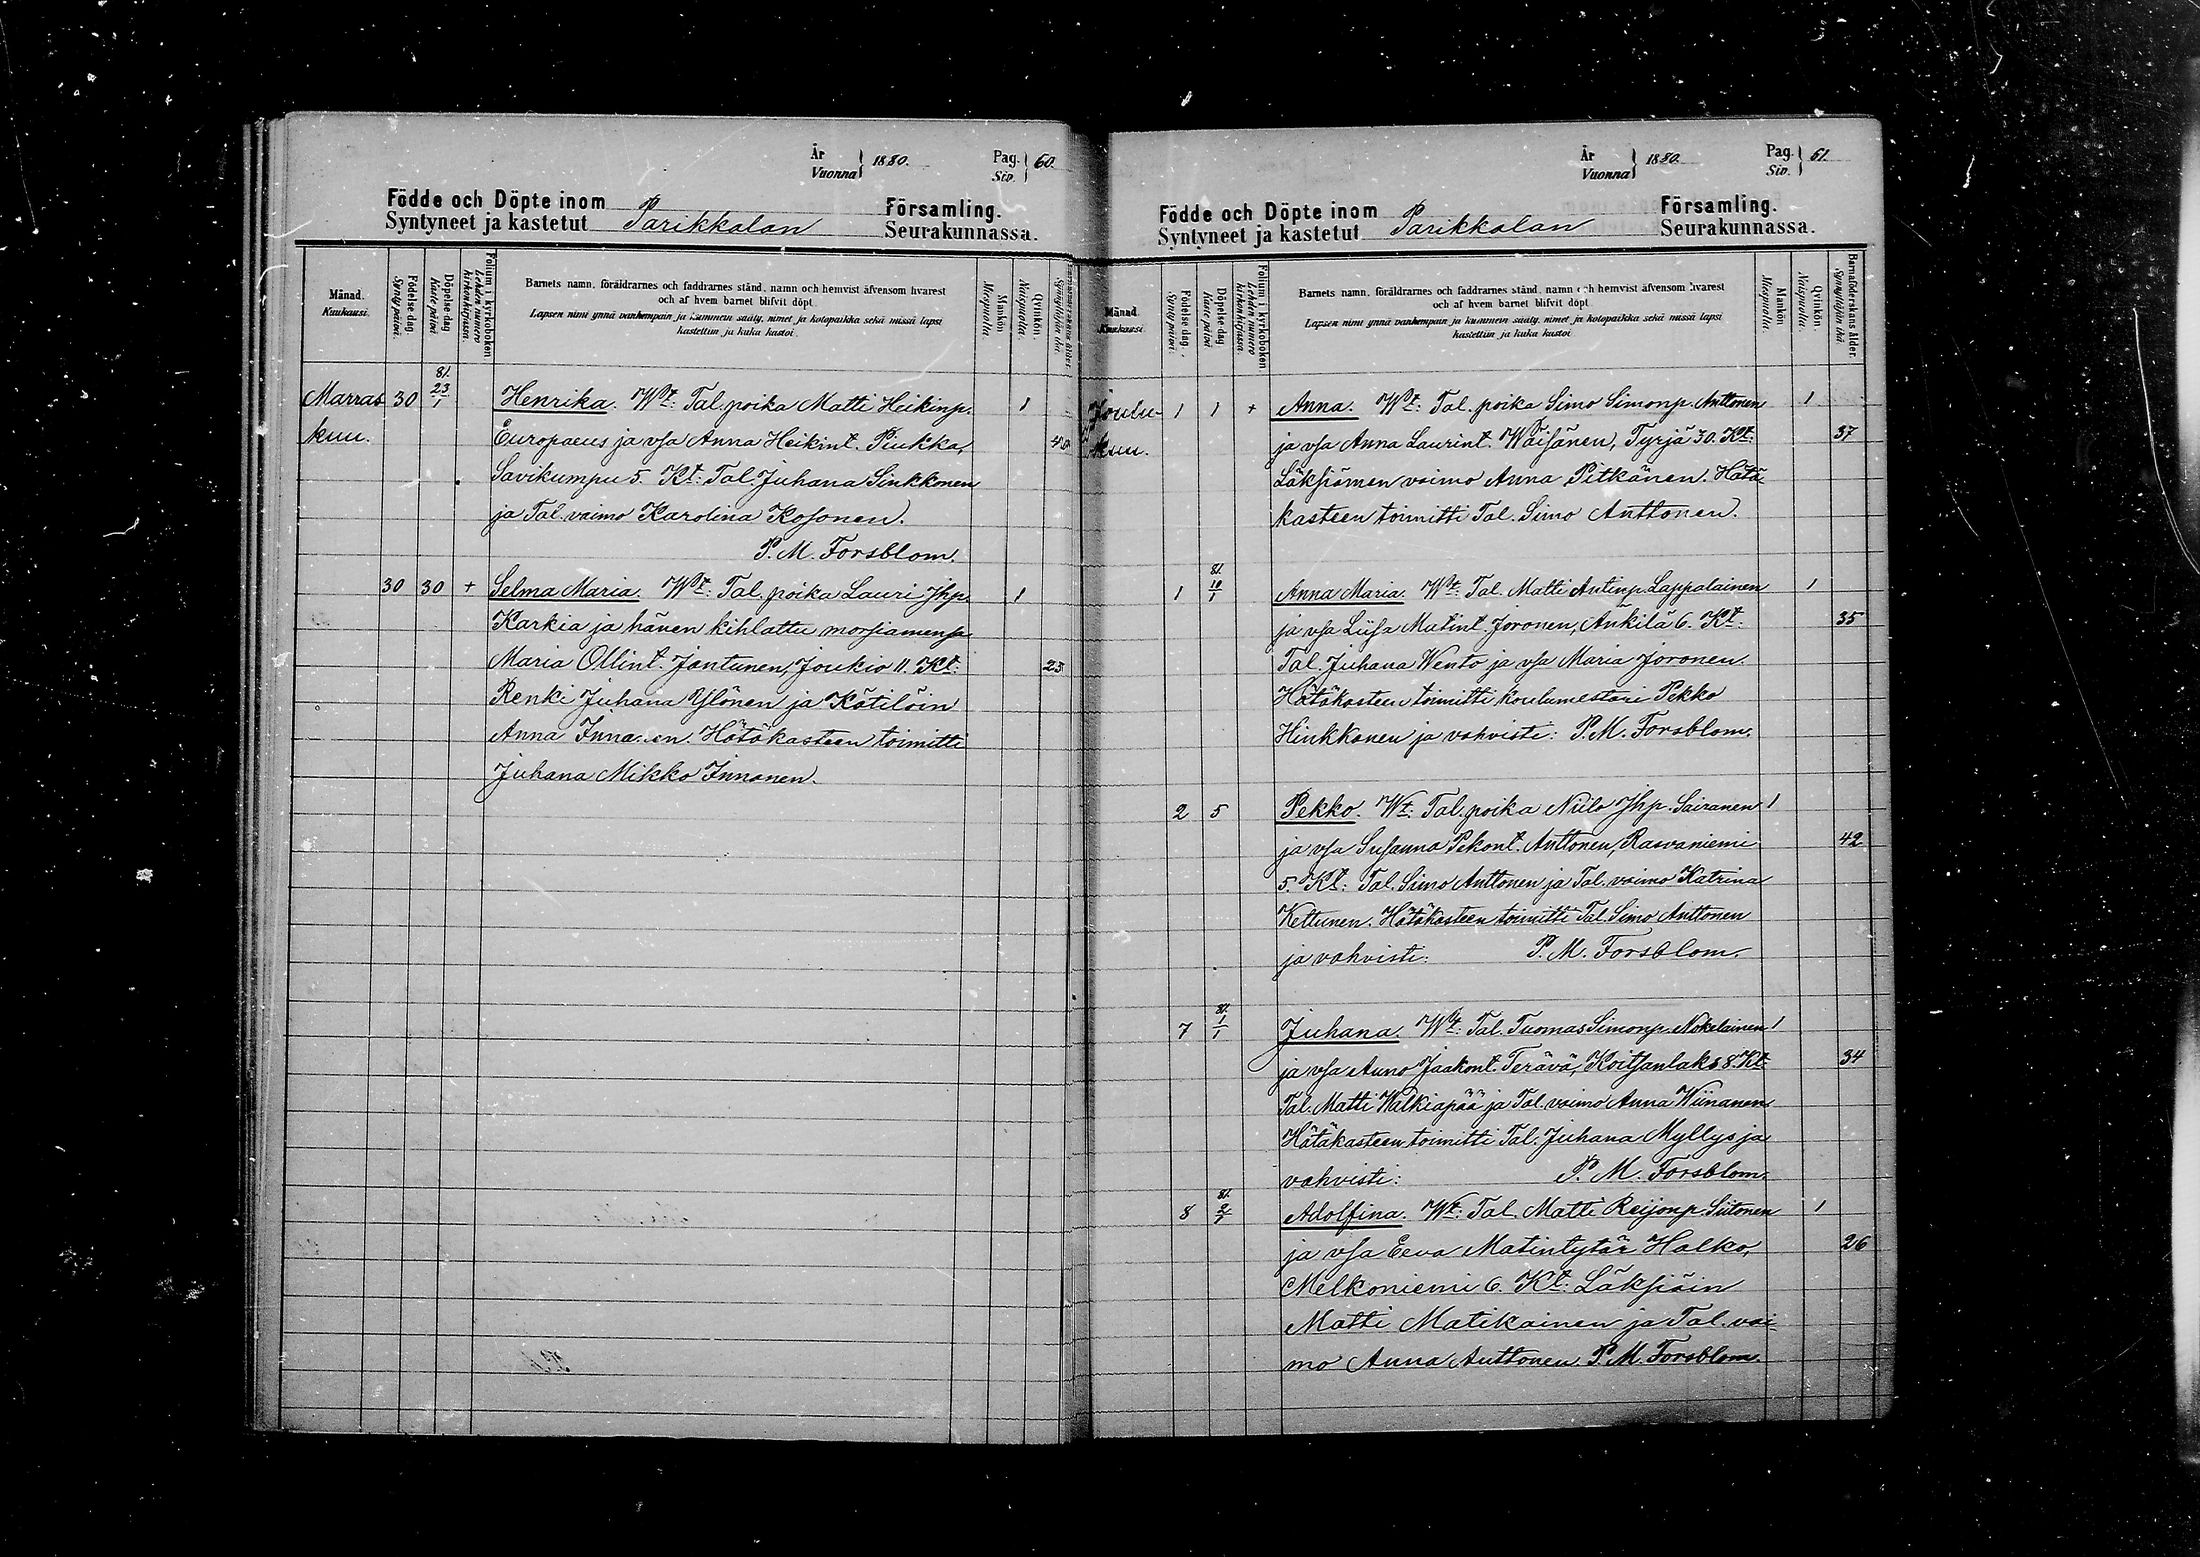 År
Vuonna
1880.
Pag.
Siv.
60.
Födde och Döpte inom
Syntyneet ja kastetut
Parikkalan
Församling.
Seurakunnassa.
Månad.
Kuukausi.
Födelsedag.
Syntypäivä.
Döpelsedag
Kastepäivä
Folium i kyrkoboken
Lehden numero kirkonkirjassa.
Barnets namn, föräldrarnes och faddrarnes stånd, namn och hemvist äfvensom hvarest
och af hvem barnet blifvit döpt.
Lapsen nimi ynnä vanhempain ja kummein sääty, nimet ja kotopaikka sekä missä lapsi
kastettiin ja kuka kastoi.
Mankön.
Miespuolta.
Qvinkön.
Naispuolta.
Marras 30 81. 23/1 Henrika. Wt: Tal. poika Matti Heikinp. 1
kuu. Europaeus ja vsa Anna Heikint. Piukka,
Savikumpu 5. Kt: Tal. Juhana Sinkkonen
ja Tal. vaimo Karolina Kosonen.
P. M. Forsblom.
30 30 + Selma Maria. Wt: Tal. poika Lauri Jhp. 1
Karkia ja hänen kihlattu morsiamensa
Maria Ollint. Jantunen, Joukio 11. Kt: 23
Renki Juhana Ylönen ja Kätilöin
Anna Inna..en. Hätäkasteen toimitti
Juhana Mikko Innanen.
År
Vuonna
1880.
Pag.
Siv.
61.
Födde och Döpte inom
Syntyneet ja kastetut
Parikkalan
Församling.
Seurakunnassa.
Månad.
Kuukausi.
Födelsedag.
Syntypäivä.
Döpelsedag
Kastepäivä
Folium i kyrkoboken
Lehden numero kirkonkirjassa.
Barnets namn, föräldrarnes och faddrarnes stånd, namn och hemvist äfvensom hvarest
och af hvem barnet blifvit döpt.
Lapsen nimi ynnä vanhempain ja kummein sääty, nimet ja kotopaikka sekä missä lapsi
kastettiin ja kuka kastoi
Mankön.
Miespuolta.
Qvinkön.
Naispuolta.
Barnaföderskans ålder.
Synnyttäjän ikä.
Joulu- 1 1 + Anna. Wt: Tal. poika Simo Simonp. Anttonen 1
kuu. ja vsa Anna Laurint. Wäisänen, Tyrjä 30. Kt: 37
Läksiämen vaimo Anna Pitkänen. Hätä
kasteen toimitti Tal. Simo Anttonen.
1 81. 10/1 Anna Maria. Wt: Tal. Matti Antinp. Lappalainen 1
ja vsa Liisa Matint. Joronen, Änkilä 6. Kt: 35
Tal. Juhana Wento ja vsa Maria Joronen.
Hätäkasteen toimitti koulumestari Pekko
Hinkkanen ja vahvisti: P. M. Forsblom.
2 5 Pekko. Wt: Tal. poika Niilo Jhp. Sairanen 1
ja vsa Susanna Pekont. Anttonen, Rasvaniemi 42
5. Kt: Tal. Simo Anttonen ja Tal. vaimo Katrina
Kettunen. Hätäkasteen toimitti Tal. Simo Anttonen
ja vahvisti: P. M. Forsblom.
7 81. 1/1 Juhana. Wt: Tal. Tuomas Simonp. Nokelainen 1
ja vsa Auno Jaakont. Terävä, Koitsanlaks 8. Kt: 34
Tal. Matti Walkiapää ja Tal. vaimo Anna Wiinanen
Hätäkasteen toimitti Tal. Juhana Myllys ja
vahvisti: P. M. Forsblom.
8 81. 2/1 Adolfina. Wt: Tal. Matti Reijonp. Siitonen 1
ja vsa Eeva Matintytär Halko, 26
Melkoniemi 6. Kt: Läksiäin
Matti Matikainen ja Tal. vai
mo Anna Anttonen. P. M. Forsblom.